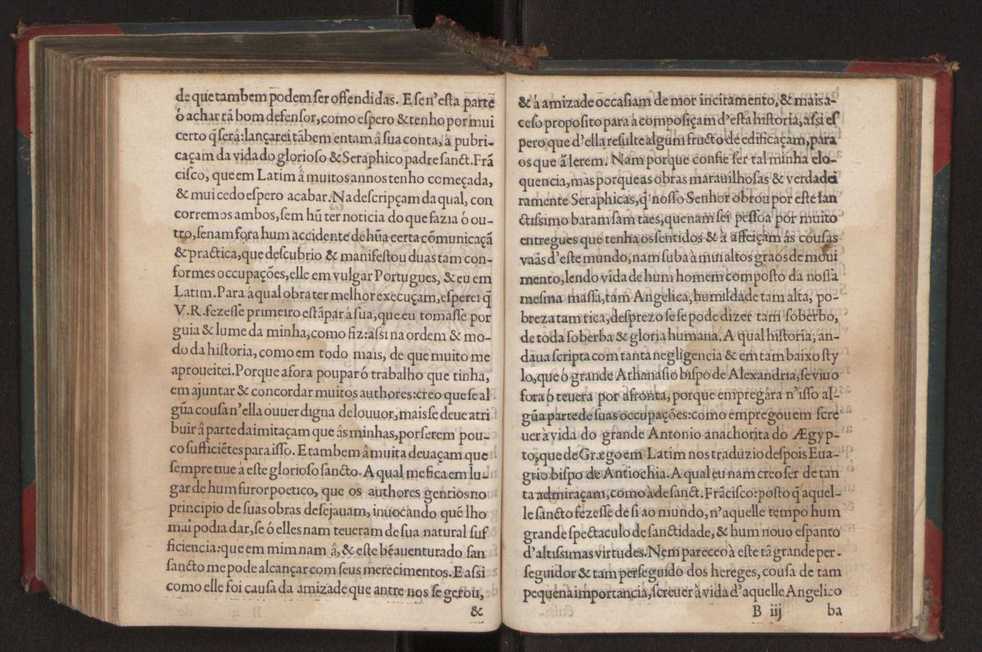 de que tambem podem ser offendidas. E se n'esta parte
ó achar tã bom defensor, como espero & tenho por mui
certo q̃ será: lançarei tãbem entam â sua conta, â pubri-
caçam da vida do glorioso & Seraphico padre sanct. Frã
cisco, que em Latim â muitos annos tenho começada,
& mui cedo espero acabar. Na descripçam da qual, con
corremos ambos, sem hũ ter noticia do que fazia ó ou-
tro, senam fora hum accidente de hũa certa cõmunicaçã
& practica, que descubrio & manifestou duas tam con-
formes occupações, elle em vulgar Portugues, & eu em
Latim. Para â qual obra ter melhor execuçam, esperei q̃
V. R. fezesse primeiro estãpar â sua, que eu tomasse por
guia & lume da minha, como fiz: assi na ordem & mo-
do da historia, como em todo mais, de que muito me
aproueitei. Porque afora poupar ó trabalho que tinha,
em ajuntar & concordar muitos authores: creo que se al
gũa cousa n'ella ouuer digna de louuor, mais se deue atri
buir â parte da imitaçam que âs minhas, por serem pou-
co sufficiẽtes para isso. E tambem â muita deuaçam que
sempre tiue â este glorioso sancto. A qual me fica em lu-
gar de hum furor poetico, que os authores gentios no
principio de suas obras desejauam, inuocando quẽ lho
mal podia dar, se ó elles nam teueram de sua natural suf
ficiencia: que em mim nam â, & este bẽauenturado san
sancto me pode alcançar com seus merecimentos. E assi
como elle foi causa da amizade que antre nos se gerou,
&
& â amizade occasiam de mor incitamento, & mais a-
ceso proposito para â composiçam d'esta historia, assi es
pero que d'ella resulte algum fructo de edificaçam, para
os que â lerem. Nam porque confie ser tal minha elo-
quencia, mas porque as obras marauilhosas & verdadei
ramente Seraphicas, q̃ nosso Senhor obrou por este san
ctissimo baram sam taes, que nam sei pessoa por muito
entregues que tenha os sentidos & â affeiçam âs cousas
vaãs d'este mundo, nam suba â mui altos graos de moui
mento, lendo vida de hum homem composto da nossa
mesma massa, tam Angelica, humildade tam alta, po-
breza tam rica, desprezo se se pode dizer tam soberbo,
de toda soberba & gloria humana. A qual historia, an-
daua scripta com tanta negligencia & em tam baixo sty
lo, que ó grande Athanasio bispo de Alexandria, se viuo
fora ó teuera por afronta, porque empregára n'isso al-
gũa parte de suas occupações: como empregou em scre
uer â vida do grande Antonio anachorita do Ægyp-
to, que de Græego em Latim nos traduzio despois Eua-
grio bispo de Antiochia. A qual eu nam creo ser de tan
ta admiraçam, como â de sanct. Frãcisco: posto q̃ aquel-
le sancto fezesse de si ao mundo, n'aquelle tempo hum
grande spectaculo de sanctidade, & hum nouo espanto
d'altissimas virtudes. Nem pareceo â este tã grande per-
seguidor & tam perseguido dos hereges, cousa de tam
pequena importancia, screuer â vida d'aquelle Angelico
B iij ba